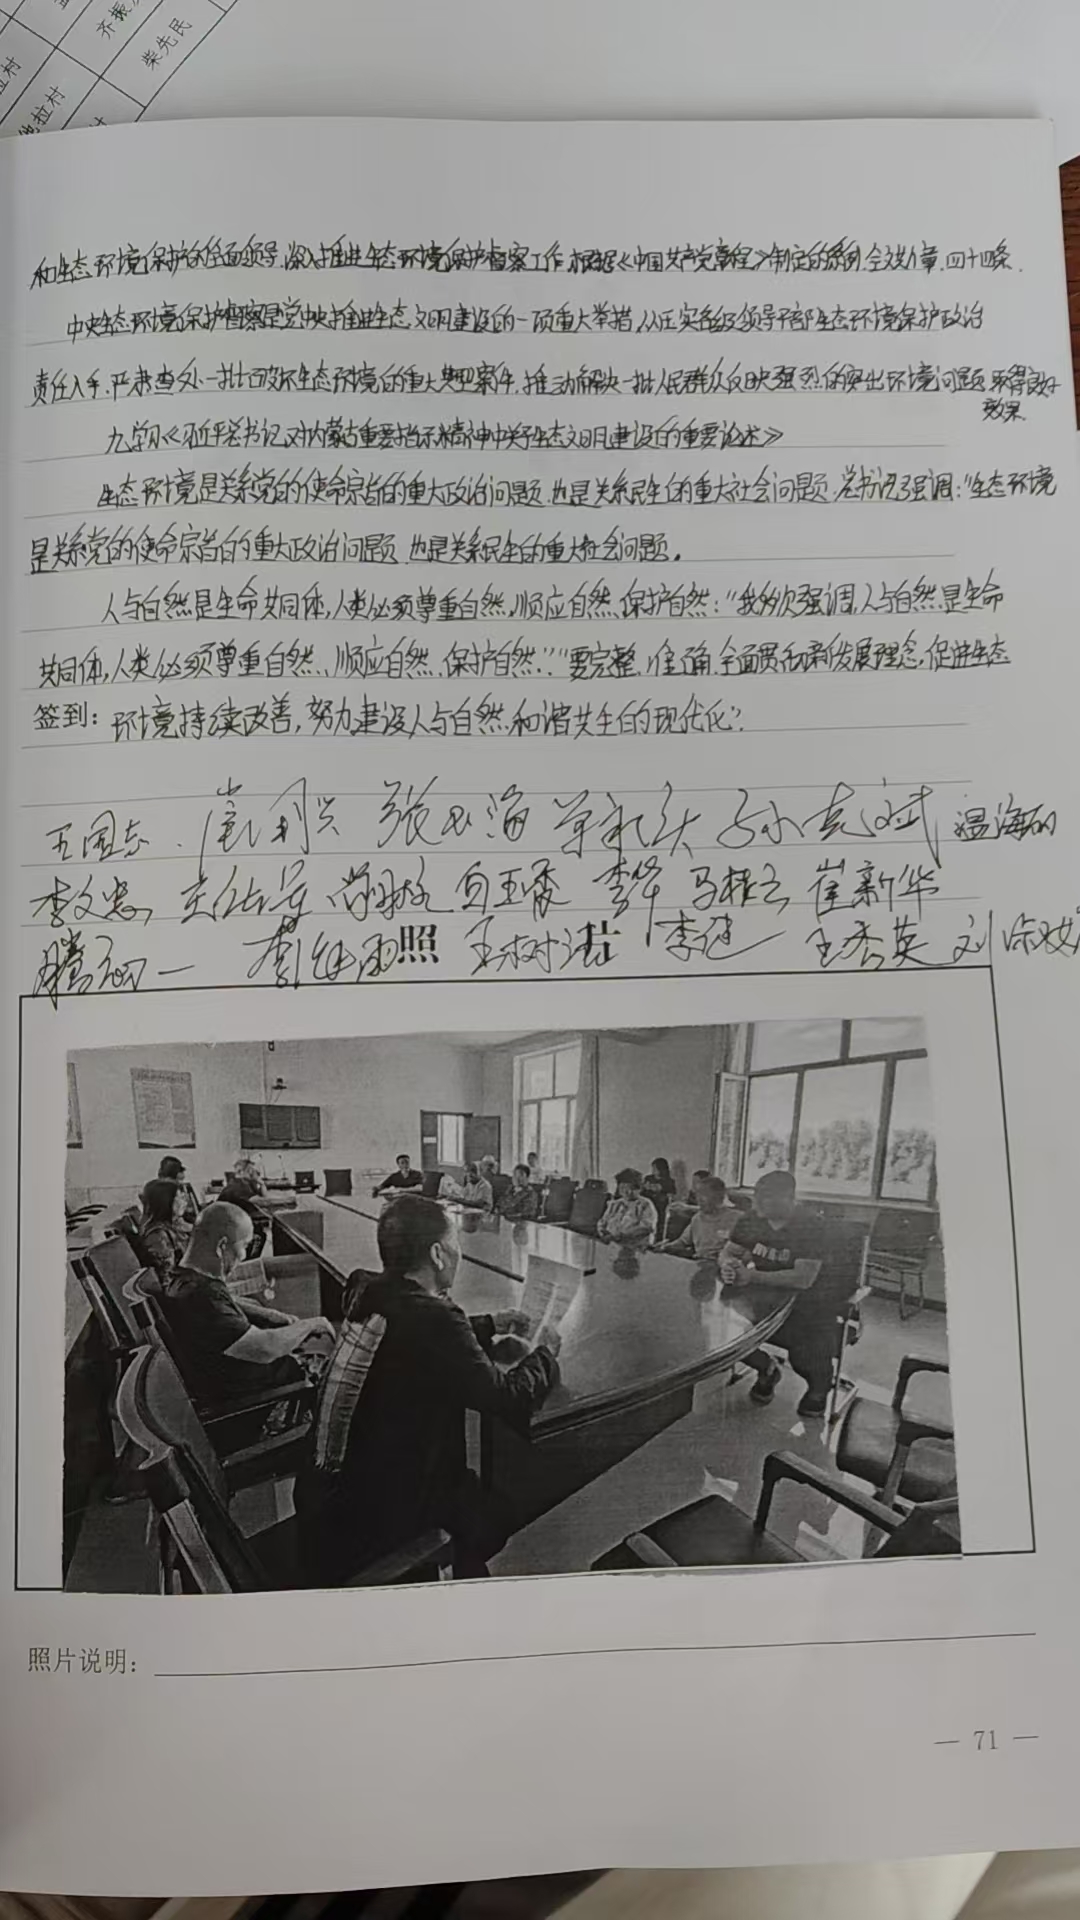 柴先民
拉村
和生态环境保护的全面领导,深入推进生态环境保护督察工作,根据《中国共产党章程》制定的条例.全文六章.四十四条.
中央生态环境保护督察是党中央推进生态文明建设的一项重大举措,从压实各级领导干部生态环境保护政治
责任入手,严肃查处一批破坏生态环境的重大典型案件,推动解决一批人民群众反映强烈的突出环境问题,取得良好
效果.
九.学习《习近平总书记对内蒙古重要指示精神中关于生态文明建设的重要论述》
生态环境是关系党的使命宗旨的重大政治问题,也是关系民生的重大社会问题.总书记强调:"生态环境
是关系党的使命宗旨的重大政治问题,也是关系民生的重大社会问题。
人与自然是生命共同体,人类必须尊重自然,顺应自然,保护自然:"我多次强调,人与自然是生命
共同体,人类必须尊重自然、顺应自然、保护自然.""要完整、准确、全面贯彻新发展理念,促进生态
签到: 环境持续改善,努力建设人与自然和谐共生的现代化".
王国志 孙克斌 温海
李文忠 白玉霞 李华 崔新华
照 片 王树 李健 王秀英 刘淑
照片说明:
— 71 —